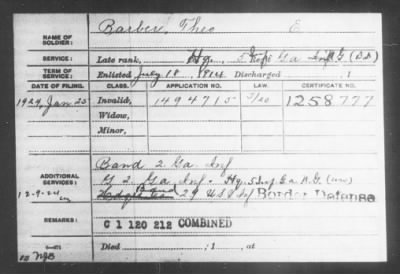 NAME OF SOLDIER: Barber, Theo E
SERVICE: Late rank, Hq. 5 Regt Ga Inf N.G. (B.D.)
TERM OF SERVICE: Enlisted July 18, 1914 Discharged , 1
DATE OF FILING. CLASS. APPLICATION NO. CERTIFICATE NO.
1924, Jan 25 Invalid, 1494715 1258777
Widow,
Minor,
ADDITIONAL SERVICES: Band 2 Ga Inf
G 2 Ga Inf. Hq. 5 Inf Ga N.G.
12-9-24 Band 29 U S Inf Border Defense
REMARKS: C 1 120 212 COMBINED
Died , 1 , at